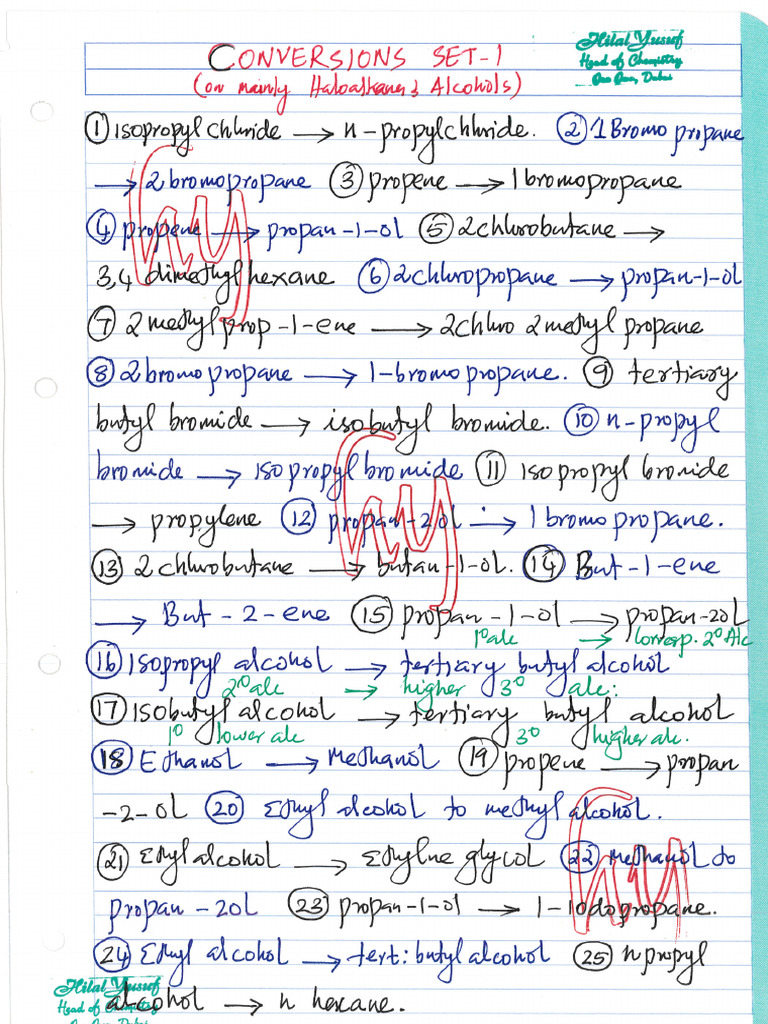 CONVERSIONS SET-1
(on mainly Haloalkanes & Alcohols)
Hilal Yusuf
Head of Chemistry
Dubai
① Isopropyl chloride → n-propylchloride. ② 1Bromo propane
→ 2 bromopropane ③ propene → 1 bromopropane
④ propene → propan-1-ol ⑤ 2chlorobutane →
3,4 dimethyl hexane ⑥ 2chloropropane → propan-1-ol
⑦ 2 methyl prop-1-ene → 2chloro 2methyl propane
⑧ 2bromo propane → 1-bromopropane. ⑨ tertiary
butyl bromide → isobutyl bromide. ⑩ n-propyl
bromide → isopropyl bromide ⑪ isopropyl bromide
→ propylene ⑫ propan-2ol → 1 bromo propane.
⑬ 2chlorobutane → butan-1-ol. ⑭ But-1-ene
→ But-2-ene ⑮ propan-1-ol → propan-2ol
1°alc → corresp. 2° Alc
⑯ Isopropyl alcohol → tertiary butyl alcohol
2°alc → higher 3° alc:
⑰ Isobutyl alcohol → tertiary butyl alcohol
1° lower alc 3° higher alc.
⑱ Ethanol → Methanol ⑲ propene → propan
-2-ol ⑳ Ethyl alcohol to methyl alcohol.
㉑ Ethyl alcohol → Ethylne glycol ㉒ methanol to
propan-2ol ㉓ propan-1-ol → 1-Iodopropane.
㉔ Ethyl alcohol → tert: butyl alcohol ㉕ n propyl
alcohol → n hexane.
Hilal Yusuf
Head of Chemistry
Dubai